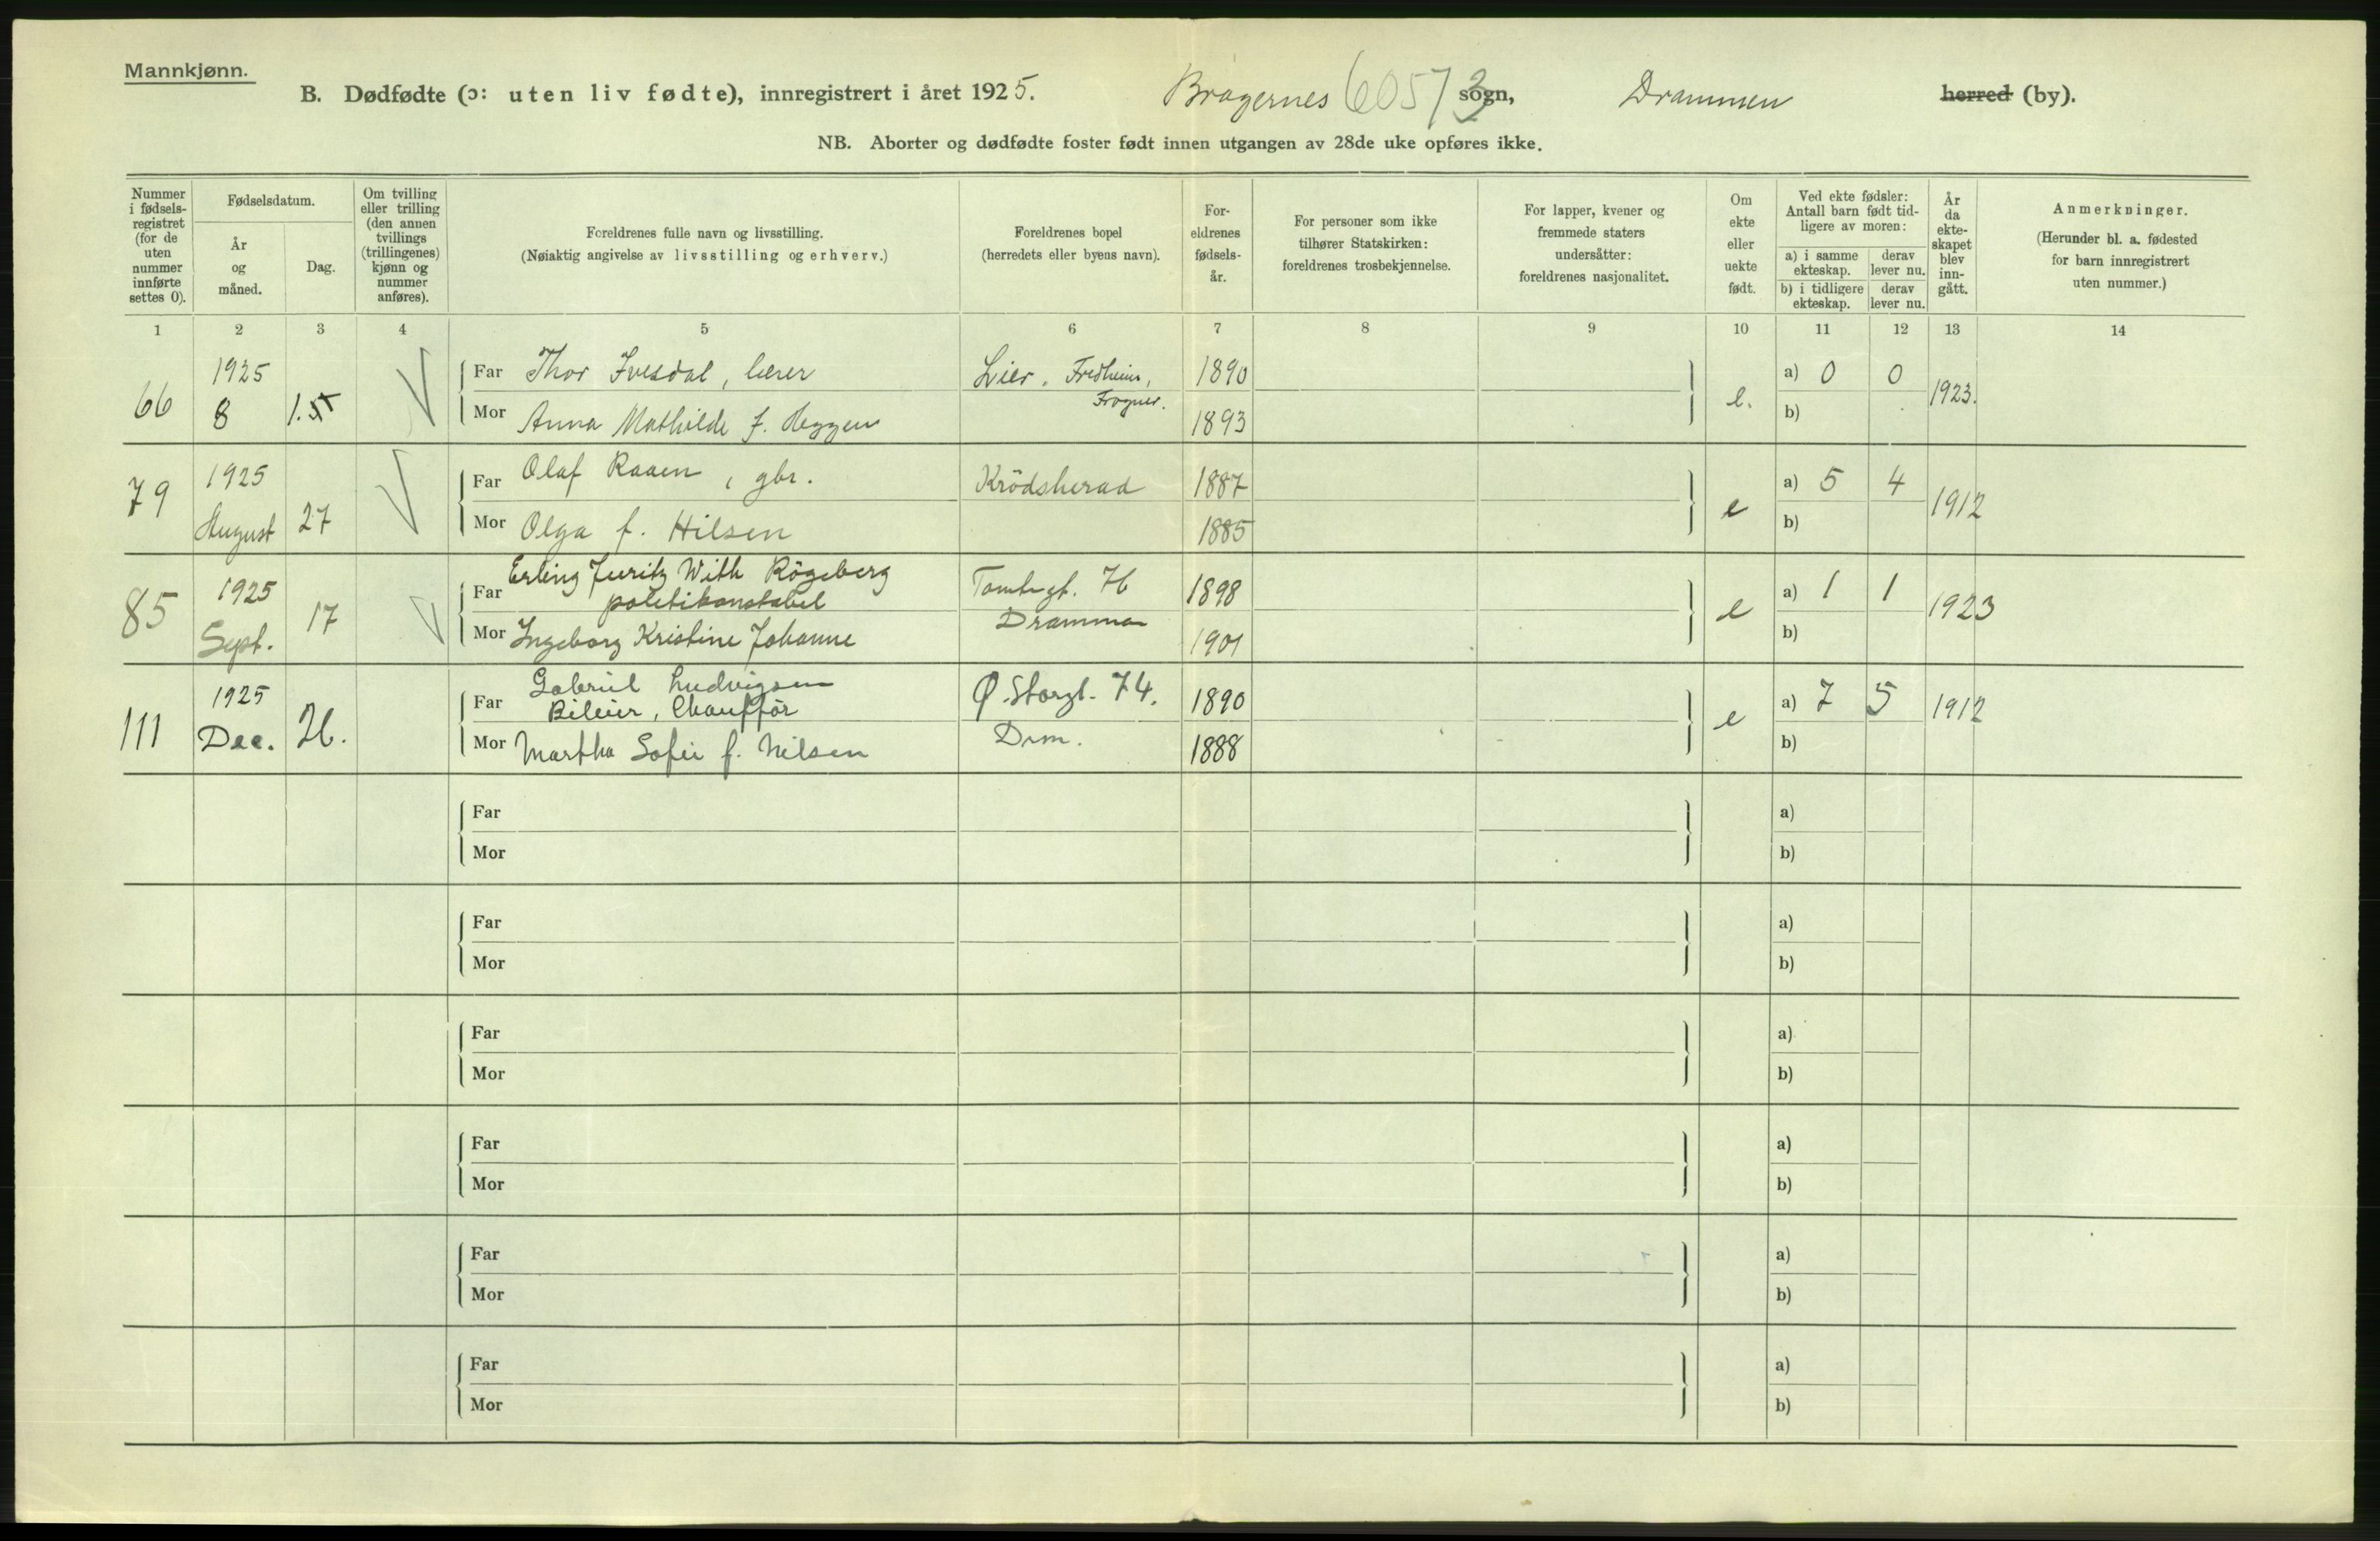 Mannkjønn.
B. Dødfødte (ɔ: uten liv fødte), innregistrert i året 1925. Bragernes 6057 3 sogn, Drammen herred (by).
NB. Aborter og dødfødte foster født innen utgangen av 28de uke opføres ikke.
Nummer i fødsels- registret (for de uten nummer innførte settes 0).
Fødselsdatum.
År og måned.
Dag.
Om tvilling eller trilling (den annen tvillings (trillingenes) kjønn og nummer anføres).
Foreldrenes fulle navn og livsstilling.
(Nøiaktig angivelse av livsstilling og erhverv.)
Foreldrenes bopel
(herredets eller byens navn).
For- eldrenes fødsels- år.
For personer som ikke tilhører Statskirken: foreldrenes trosbekjennelse.
For lapper, kvener og fremmede staters undersåtter: foreldrenes nasjonalitet.
Om ekte eller uekte født.
Ved ekte fødsler: Antall barn født tid- ligere av moren:
a) i samme ekteskap.
derav lever nu.
b) i tidligere ekteskap.
derav lever nu.
År da ekte- skapet blev inn- gått.
Anmerkninger.
(Herunder bl. a. fødested for barn innregistrert uten nummer.)
1 2 3 4 5 6 7 8 9 10 11 12 13 14
1925 Far Thor Ivesdal, lærer Lier. Fredheim, 1890 a) 0 0
66 8 Frogner. e. 1923.
Mor Anna Mathilde f. Heggen 1893 b)
1925 Far Olaf Raaen, gbr. Krödsherad 1887 a) 5 4
79 August 27 e 1912
Mor Olga f. Hilsen 1885 b)
Erling Juritz With Rögeberg
1925 Far politikonstabel 76 1898 a) 1 1
85 Sept. 17 Drammen e 1923
Mor Ingeborg Kristine Johanne 1901 b)
Gabriel Ludvigsen
1925 Far Bileier, Chaufför Ø. Storgt. 74. 1890 a) 7 5
111 Dec. 26. Drm. e 1912
Mor Martha Sofie f. Nilsen 1888 b)
Far a)
Mor b)
Far a)
Mor b)
Far a)
Mor b)
Far a)
Mor b)
Far a)
Mor b)
Far a)
Mor b)